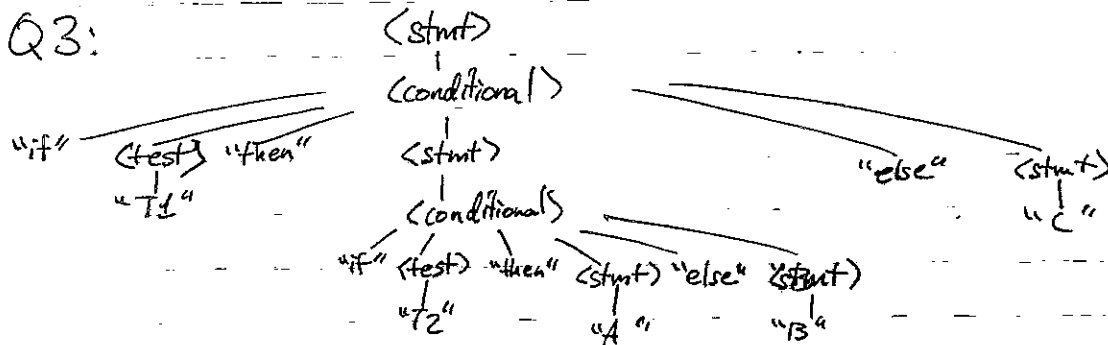 Q3:
<stmt>
<conditional>
"if" <test> "then" <stmt> "else" <stmt>
"T1" "C"
<conditional>
"if" <test> "then" <stmt> "else" <stmt>
"T2" "A" "B"